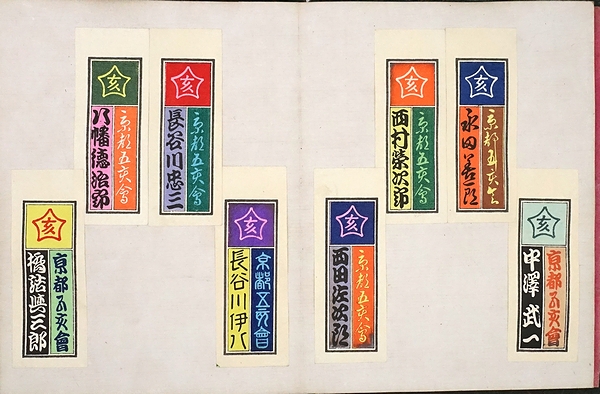 亥
京都五亥會
中澤武一
亥
京都五亥會
永田善一郎
亥
京都五亥會
西村榮次郎
亥
京都五亥會
西田佐次郎
亥
京都五亥會
長谷川伊八
亥
京都五亥會
長谷川忠三
亥
京都五亥會
八幡德治郎
亥
京都五亥會